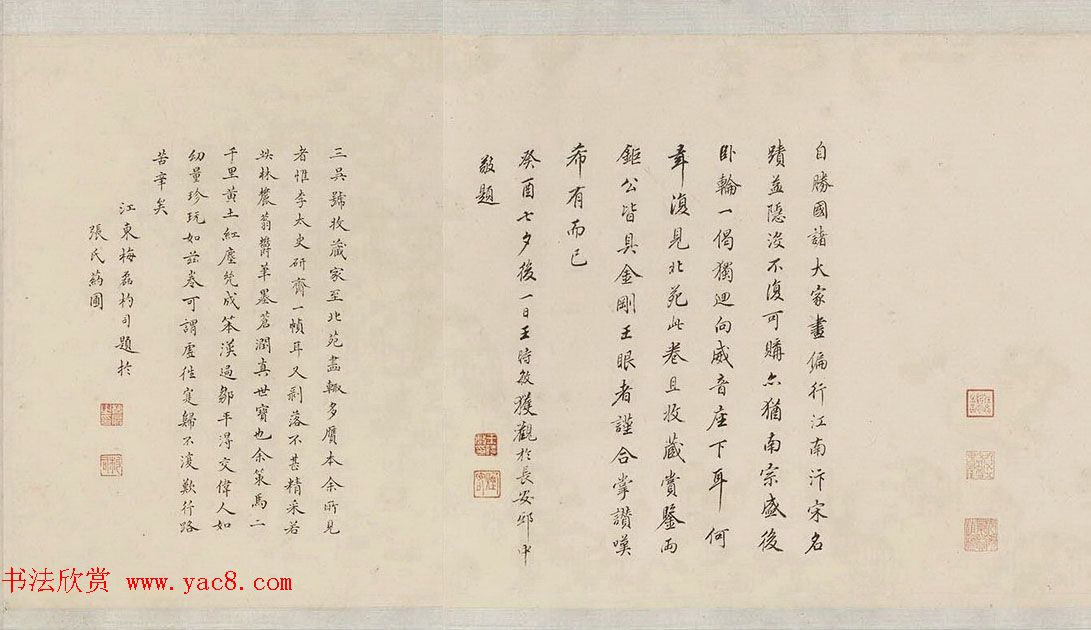 自勝國諸大家畫偏行江南汴宋名
蹟益隱沒不復可購亦猶南宗盛後
臥輪一偈獨迴向威音座下耳何
幸復見北苑此卷且收藏賞鑒兩
鉅公皆具金剛王眼者謹合掌讃嘆
希有而已
癸酉七夕後一日王時敏獲觀於長安邸中
敬題
三吳號收藏家至北苑畫輒多贋本余所見
者惟李太史研齋一幀耳又剝落不甚精采若
此林麓蓊欝筆墨蒼潤真世寶也余策馬二
千里黃土紅塵凭成笨漢過鄒平淂交偉人如
幼量珍玩如茲卷可謂虛徃寔歸不復歎行路
苦辛矣
江東梅磊杓司題於
張氏葯圃
书法欣赏 www.yac8.com